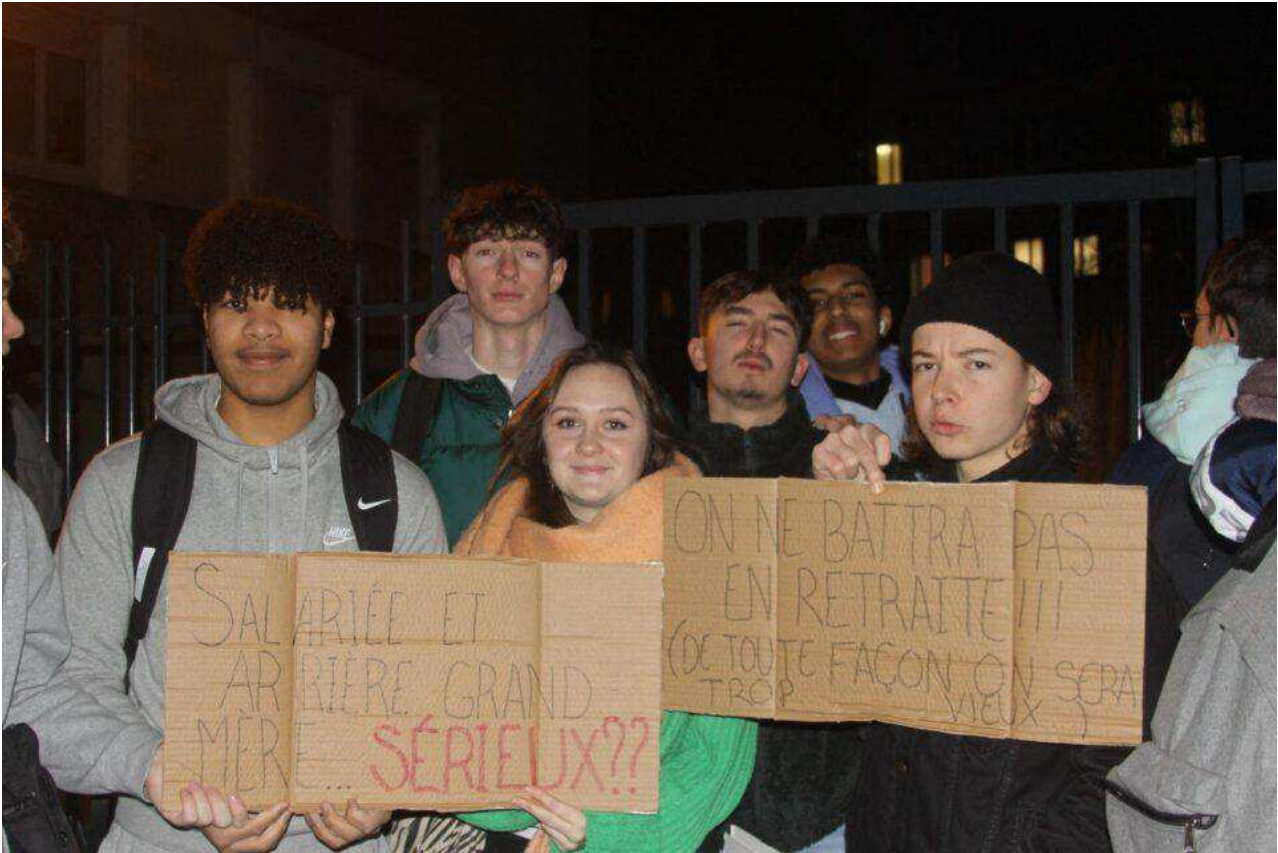 SALARIÉE ET
ARRIÈRE GRAND
MÈRE... SÉRIEUX??
ON NE BATTRA PAS
EN RETRAITE!!!
(DE TOUTE FAÇON ON SERA
TROP VIEUX)